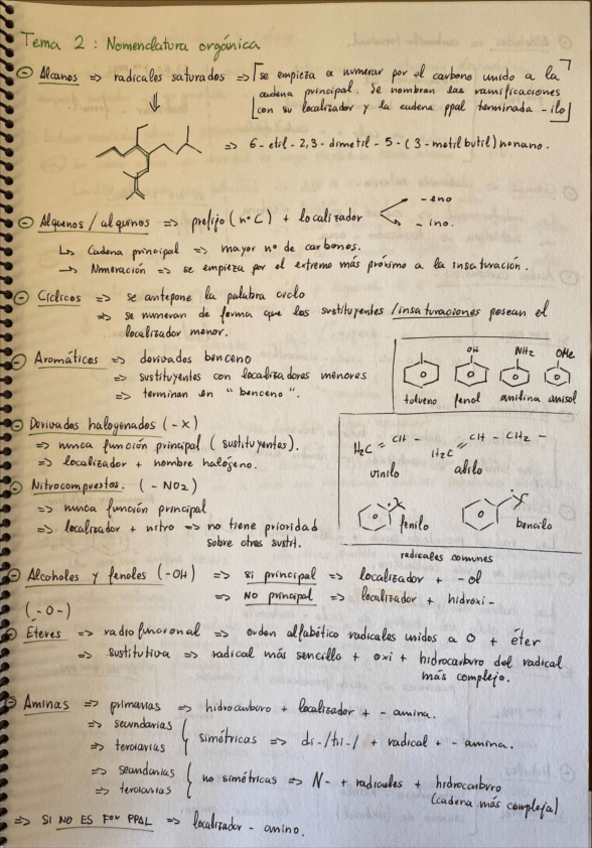 Tema 2 : Nomenclatura orgánica
Alcanos => radicales saturados => [se empieza a numerar por el carbono unido a la
cadena principal. Se nombran las ramificaciones
con su localizador y la cadena ppal terminada -ilo]
=> 6-etil-2,3-dimetil-5-(3-metilbutil)nonano.
Alquenos / alquinos => prefijo (nº C) + localizador
-eno
-ino.
Cadena principal => mayor nº de carbonos.
Numeración => se empieza por el extremo más próximo a la insaturación.
Cíclicos => se antepone la palabra ciclo
=> se numeran de forma que los sustituyentes /insaturaciones posean el
localizador menor.
Aromáticos => derivados benceno
=> sustituyentes con localizadores menores
=> terminan en "benceno".
OH NH2 OMe
tolueno fenol anilina anisol
Derivados halogenados (-X)
=> nunca función principal (sustituyentes).
=> localizador + nombre halógeno.
H2C = CH - H2C = CH - CH2 -
vinilo alilo
fenilo bencilo
radicales comunes
Nitrocompuestos. (-NO2)
=> nunca función principal
=> localizador + nitro => no tiene prioridad
sobre otros sustit.
Alcoholes y fenoles (-OH) => si principal => localizador + -ol
=> NO principal => localizador + hidroxi-
(-O-)
Éteres => radiofuncional => orden alfabético radicales unidos a O + éter
=> sustitutiva => radical más sencillo + oxi + hidrocarburo del radical
más complejo.
Aminas => primarias => hidrocarburo + localizador + -amina.
=> secundarias
=> terciarias
simétricas => di-/tri-/ + radical + -amina.
=> secundarias
=> terciarias
no simétricas => N- + radicales + hidrocarburo
(cadena más compleja)
=> SI NO ES FON PPAL => localizador - amino.